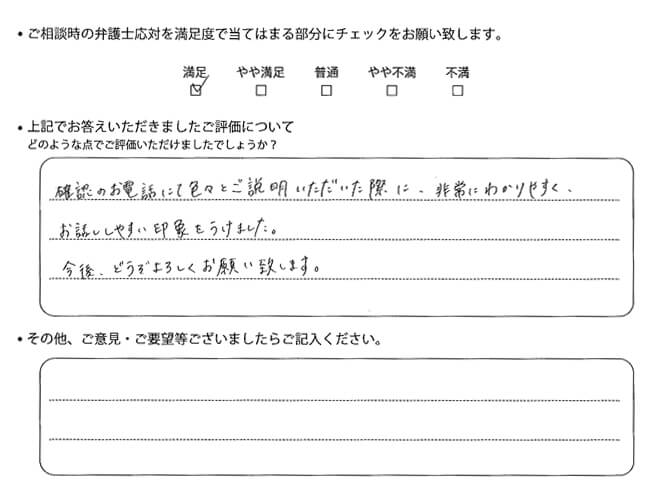 • ご相談時の弁護士応対を満足度で当てはまる部分にチェックをお願い致します。
満足 やや満足 普通 やや不満 不満
• 上記でお答えいただきましたご評価について
どのような点でご評価いただけましたでしょうか？
確認のお電話にて色々とご説明いただいた際に、非常にわかりやすく、
お話ししやすい印象をうけました。
今後、どうぞよろしくお願い致します。
• その他、ご意見・ご要望等ございましたらご記入ください。